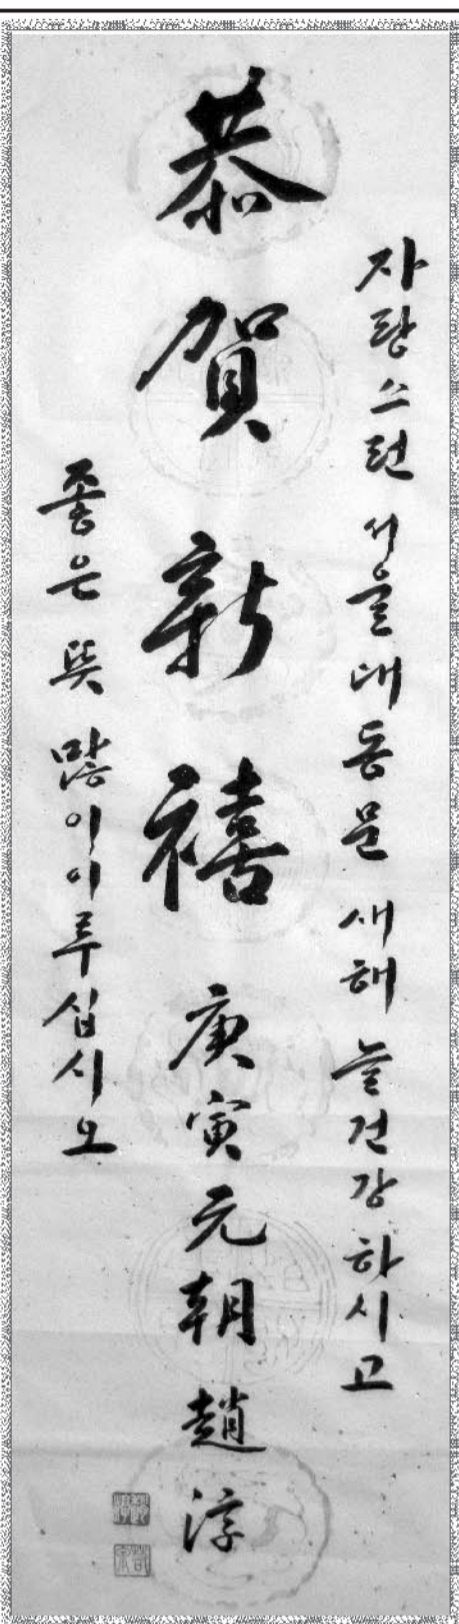 자랑스런 서울대동문 새해 늘 건강하시고
恭賀新禧 庚寅元朝 趙淳
좋은 뜻 많이 이루십시오